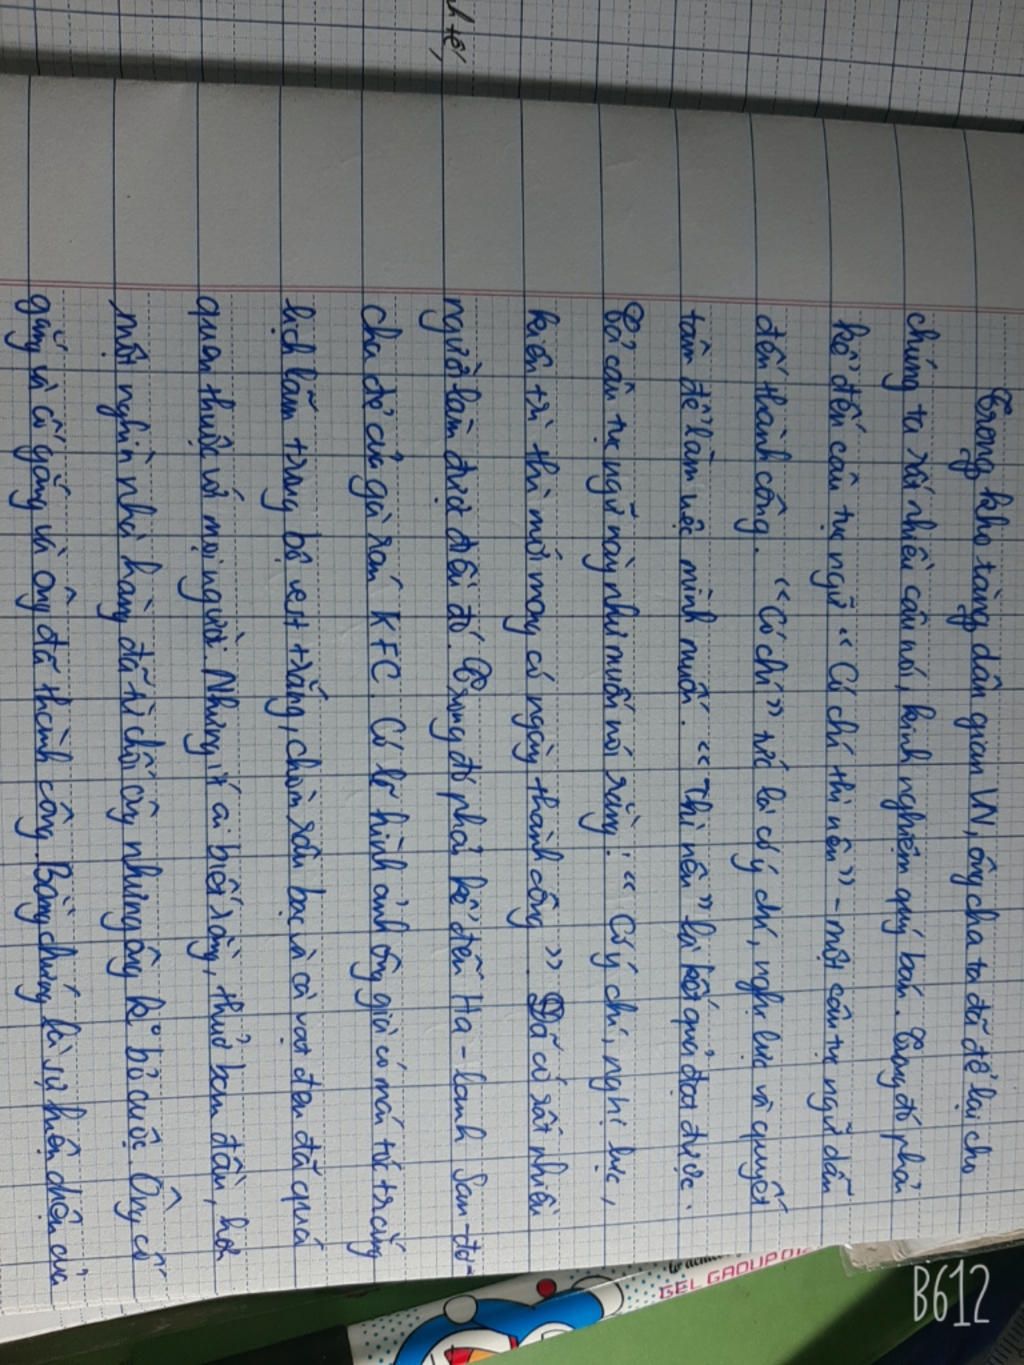 Trong kho tàng dân gian VN, ông cha ta đã để lại cho
chúng ta rất nhiều câu nói, kinh nghiệm quý báu. Trong đó phải
kể đến câu tục ngữ "Có chí thì nên" - một câu tục ngữ dẫn
đến thành công. "Có chí" tức là có ý chí, nghị lực và quyết
tâm để làm việc mình muốn. "Thì nên" là kết quả đạt được.
Cả câu tục ngữ này như muốn nói rằng: "Có ý chí, nghị lực,
kiên trì thì mới mong có ngày thành công". Đã có rất nhiều
người làm được điều đó. Trong đó phải kể đến Ha-lanh San-đơ-
cha đẻ của gà rán KFC. Có lẽ hình ảnh ông già có mái tóc trắng
lịch lãm trong bộ vest trắng, chòm râu bạc và cà vạt đen đã quá
quen thuộc với mọi người. Nhưng ít ai biết rằng, thuở ban đầu, hơn
một nghìn nhà hàng đã từ chối ông nhưng ông k° bỏ cuộc. Ông cố
gắng và cố gắng và ông đã thành công. Bằng chứng là sự hiện diện của
h tế,
GEL GAOUP
B612